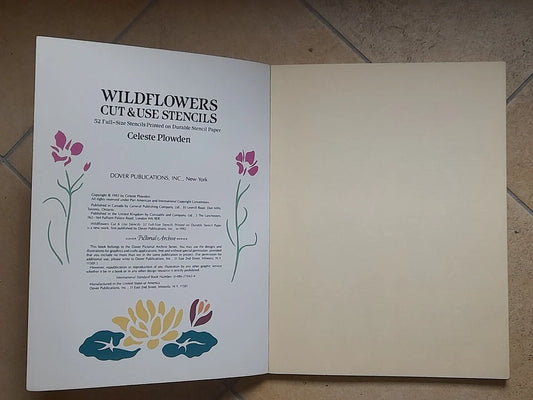 WILDFLOWERS
CUT & USE STENCILS
52 Full-Size Stencils Printed on Durable Stencil Paper
Celeste Plowden
DOVER PUBLICATIONS, INC., New York
Copyright © 1992 by Celeste Plowden.
All rights reserved under Pan American and International Copyright Conventions.
Published in Canada by General Publishing Company, Ltd., 30 Lesmill Road, Don Mills,
Toronto, Ontario.
Published in the United Kingdom by Constable and Company, Ltd., 3 The Lanchesters,
162–164 Fulham Palace Road, London W6 9ER.
Wildflowers Cut & Use Stencils: 52 Full-Size Stencils Printed on Durable Stencil Paper
is a new work, first published by Dover Publications, Inc., in 1992.
Pictorial Archive
This book belongs to the Dover Pictorial Archive Series. You may use the designs and
illustrations for graphics and crafts applications, free and without special permission, provided
that you include no more than ten in the same publication or project. (For permission for
additional use, please write to Dover Publications, Inc., 31 East 2nd Street, Mineola, N.Y.
11501.)
However, republication or reproduction of any illustration by any other graphic service
whether it be in a book or in any other design resource is strictly prohibited.
International Standard Book Number: 0-486-
Manufactured in the United States of America
Dover Publications, Inc., 31 East 2nd Street, Mineola, N.Y. 11501